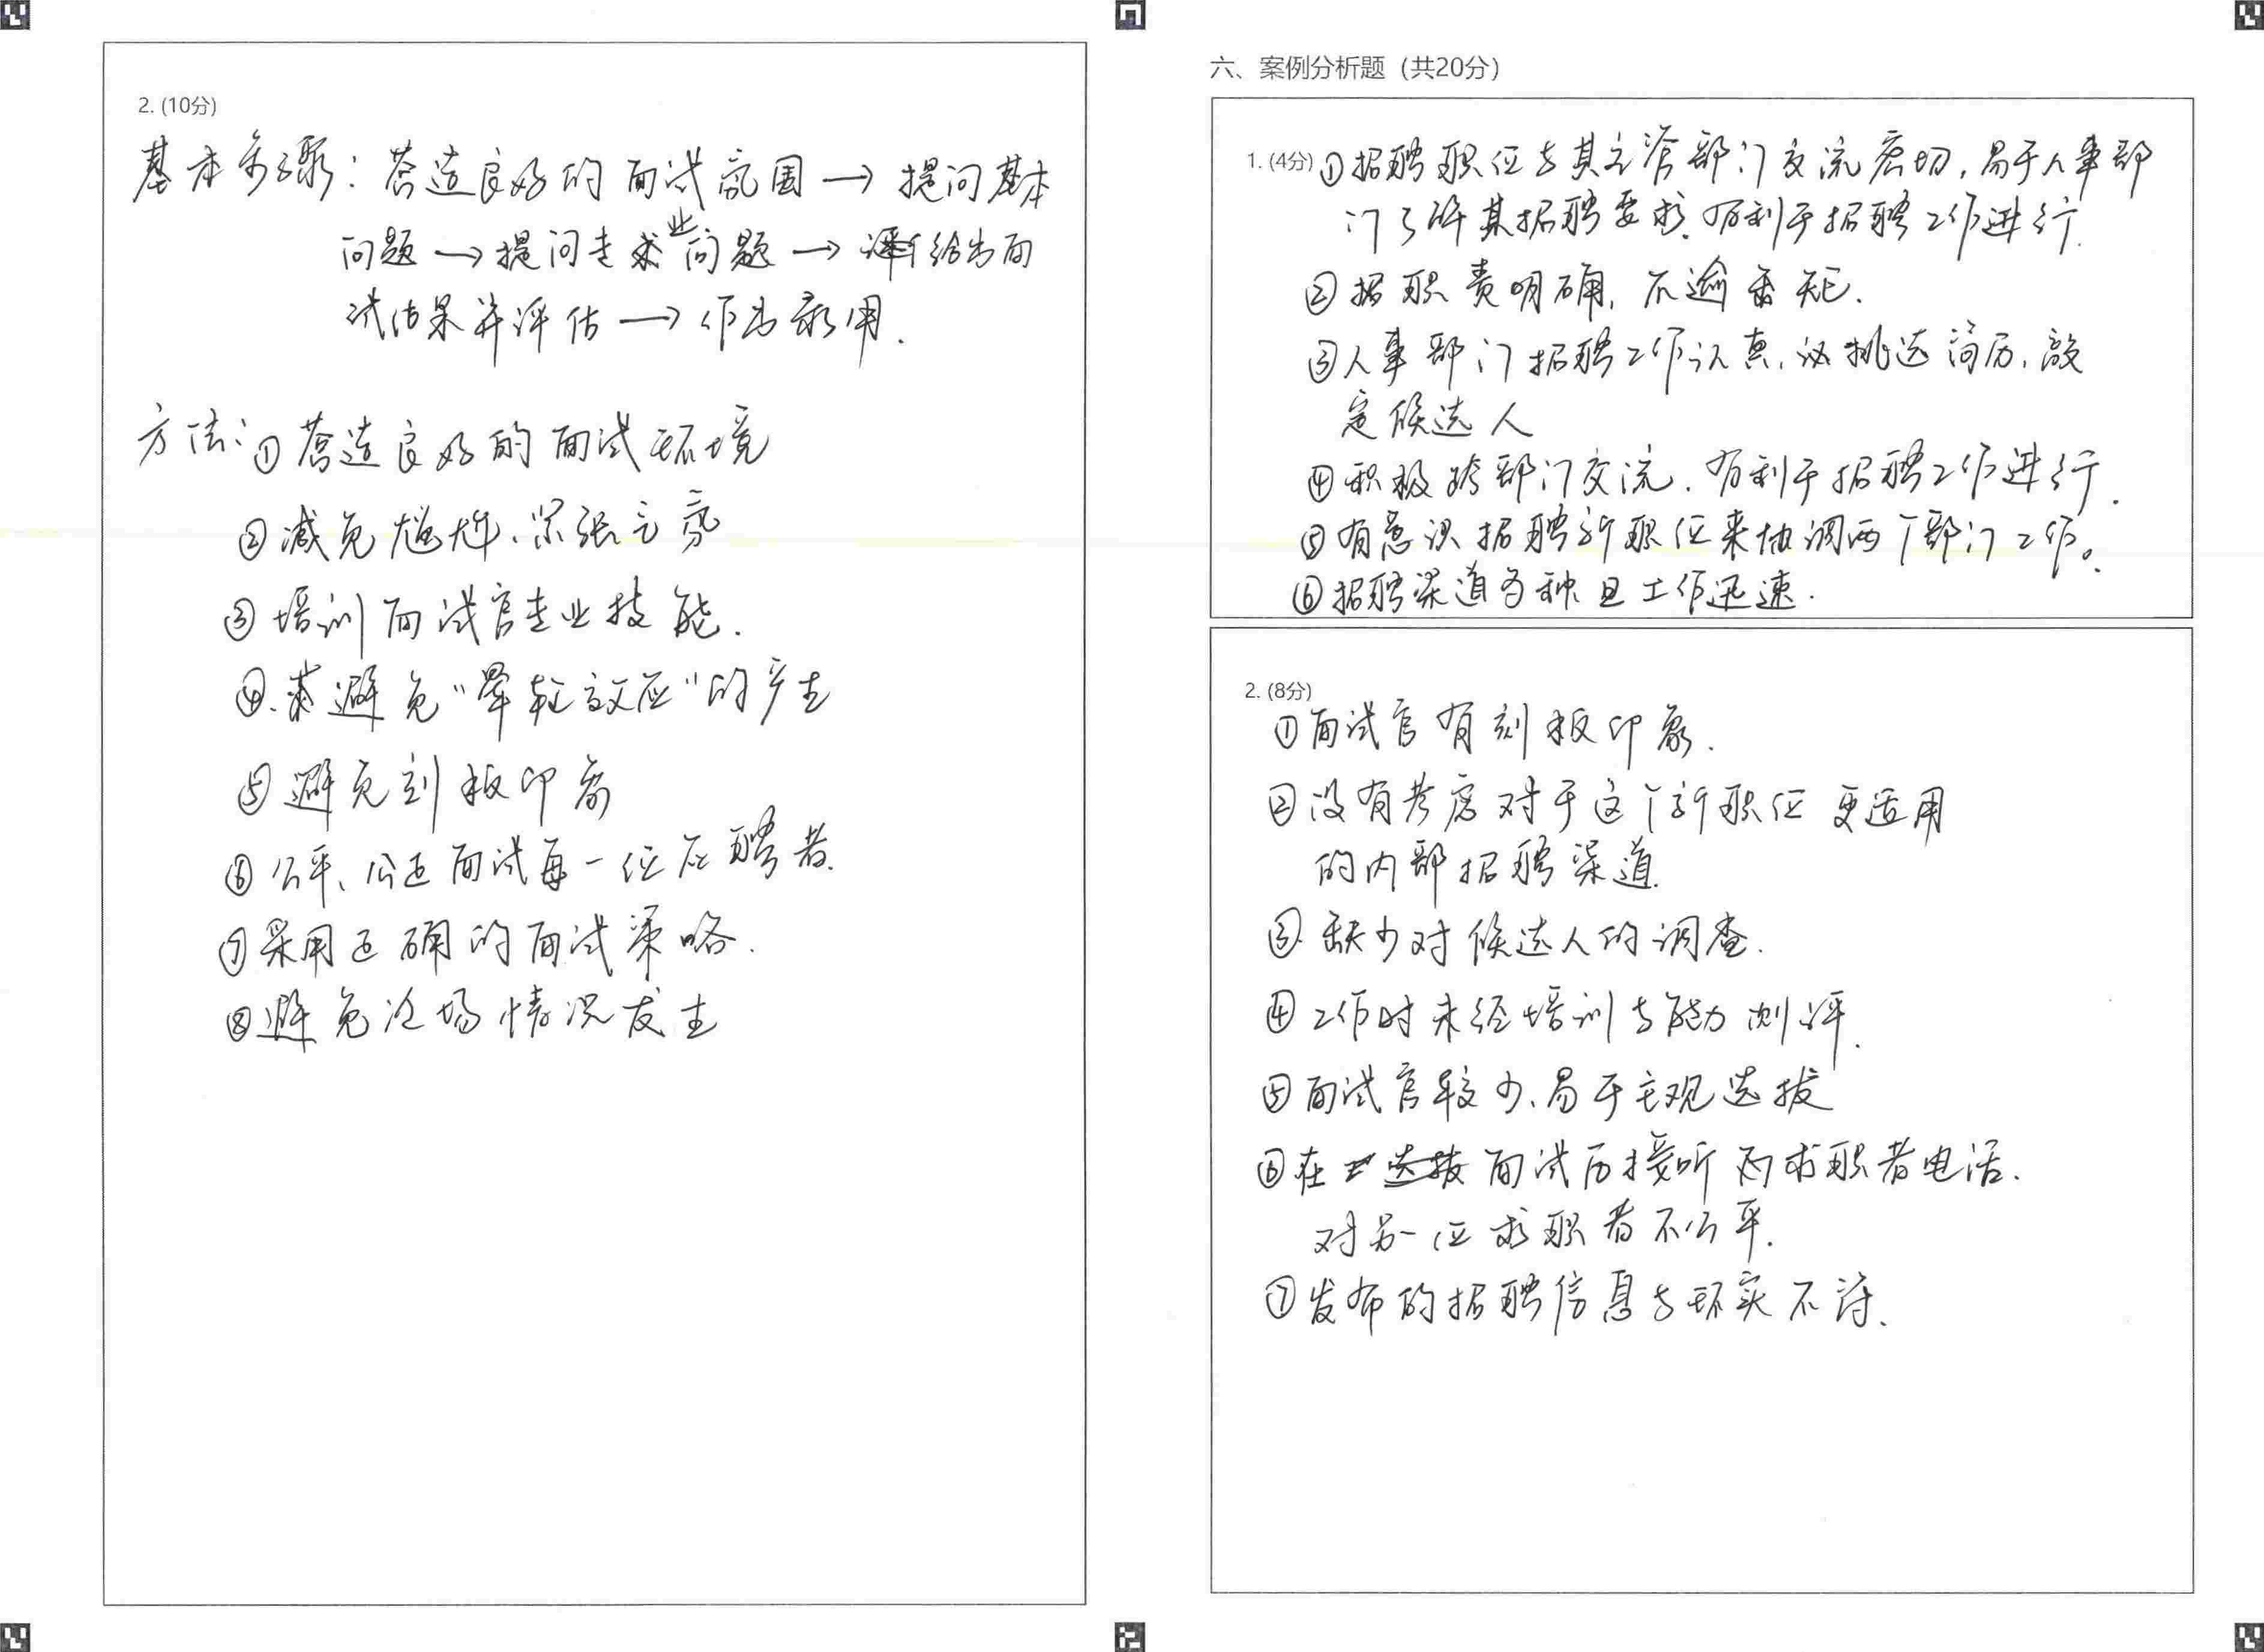 2. (10分)
基本步骤：营造良好的面试氛围→提问基本
问题→提问专业问题→给出面
试结果并评估→作为录用.
方法：①营造良好的面试环境
②减免尴尬、紧张气氛
③培训面试官专业技能.
④.避免“晕轮效应”的产生
⑤避免刻板印象
⑥公平、公正面试每一位应聘者.
⑦采用正确的面试策略.
⑧避免冷场情况发生
六、案例分析题（共20分）
1. (4分) ①招聘职位与其主管部门交流密切,易于人事部
门了解其招聘要求.有利于招聘工作进行.
②职责明确,不逾番矩.
③人事部门招聘工作认真,挑选简历,敲
定候选人
④积极跨部门交流.有利于招聘工作进行.
⑤有意识招聘新职位来协调两个部门工作。
⑥招聘渠道多种且工作迅速.
2. (8分)
①面试官有刻板印象.
②没有考虑对于这个新职位更适用
的内部招聘渠道.
③.缺少对候选人的调查.
④工作时未经培训与能力测评.
⑤面试官较少、易于主观选拔
⑥在面试后接听两求职者电话.
对另一位求职者不公平.
⑦发布的招聘信息与现实不符.